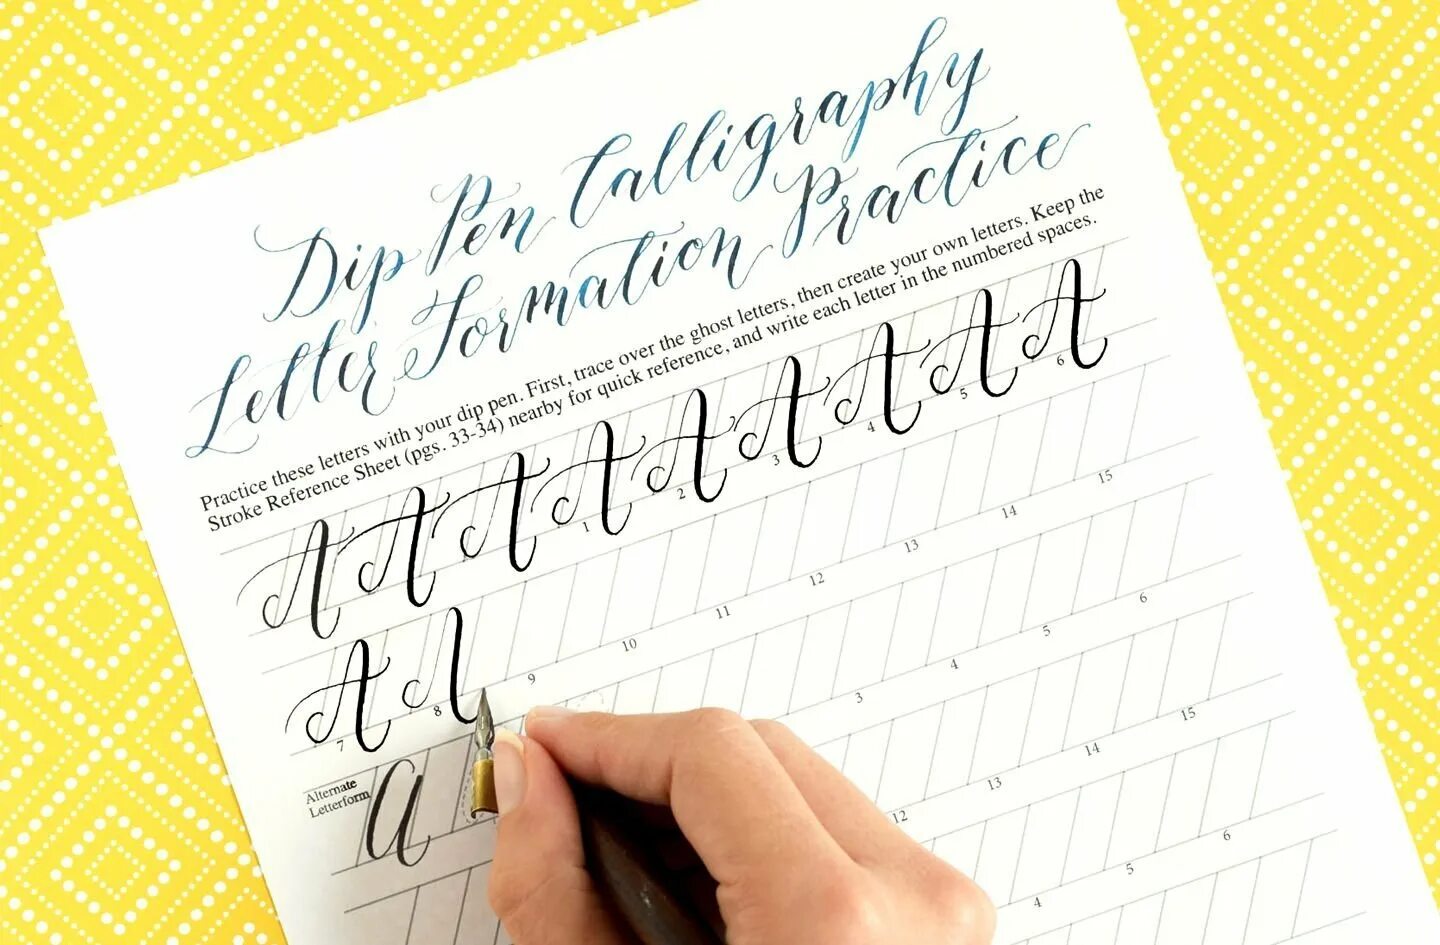 Dip Pen Calligraphy
Letter Formation Practice
Practice these letters with your dip pen. First, trace over the ghost letters, then create your own letters. Keep the
Stroke Reference Sheet (pgs. 33-34) nearby for quick reference, and write each letter in the numbered spaces.
A A A A A A A A A
1 2 3 4 5 6
A A
7 8 9 10 11 12 13 14 15
Alternate
Letterform
a
3 4 5 6
12 13 14 15
4 5 6